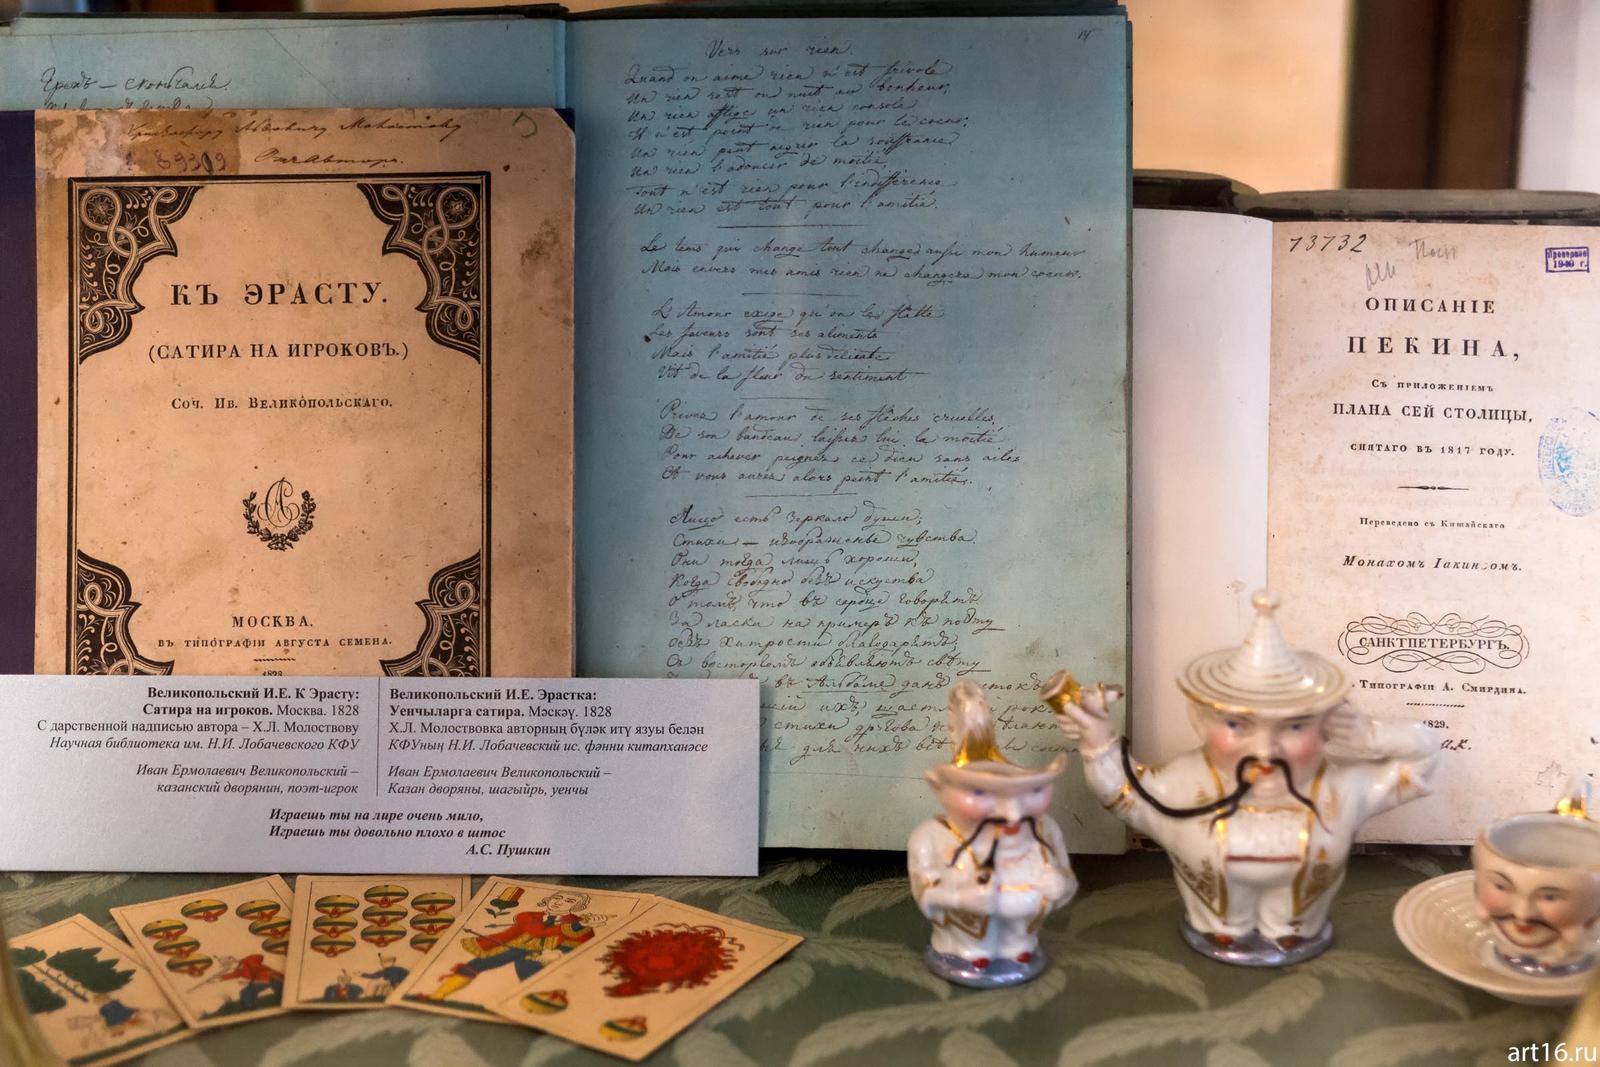 Грехъ — скончался.
89309
КЪ ЭРАСТУ.
(САТИРА НА ИГРОКОВЪ.)
Соч. Ив. Великопольскаго.
МОСКВА.
ВЪ ТИПОГРАФІИ АВГУСТА СЕМЕНА.
1828
Великопольский И.Е. К Эрасту:
Сатира на игроков. Москва. 1828
С дарственной надписью автора – Х.Л. Молоствову
Научная библиотека им. Н.И. Лобачевского КФУ
Иван Ермолаевич Великопольский –
казанский дворянин, поэт-игрок
Великопольский И.Е. Эрастка:
Уенчыларга сатира. Мәскәү. 1828
Х.Л. Молоствовка авторның бүләк итү язуы белән
КФУның Н.И. Лобачевский ис. фәнни китапханәсе
Иван Ермолаевич Великопольский –
Казан дворяны, шагыйрь, уенчы
Играешь ты на лире очень мило,
Играешь ты довольно плохо в штос
А.С. Пушкин
14
Vers sur rien.
Quand on aime rien n'est frivole
Un rien sert ou nuit au bonheur;
Un rien afflige un rien console
Il n'est point de rien pour le coeur;
Un rien peut aigrir la souffrance
Un rien l'adoucir de moitié,
Tout n'est rien pour l'indifférence
Un rien est tout pour l'amitié.
Le tems qui change tout change aussi mon humeur
Mais envers mes amis rien ne changera mon coeur.
L'Amour exige qu'on le flatte
Les faveurs sont ses aliments
Mais l'amitié plus délicate
Vit de la fleur du sentiment
Privez l'amour de ses flèches cruelles,
De son bandeau laissez lui la moitié
Pour achever peignez ce dieu sans ailes
Et vous aurez alors peint l'amitié.
Лицо есть зеркало души;
Стихи — изображенье чувства.
Они тогда лишь хороши,
Когда свободно безъ искуства
О томъ, что въ сердце говоритъ
За ласки на примеръ къ поэту
безъ хитрости благодарятъ,
Съ восторгомъ объявляютъ свѣту
73732
Проверено
1949 г.
ОПИСАНІЕ
ПЕКИНА,
Съ приложеніемъ
ПЛАНА СЕЙ СТОЛИЦЫ,
СНЯТАГО ВЪ 1817 ГОДУ.
Переведено съ Китайскаго
Монахомъ
САНКТПЕТЕРБУРГЪ.
Типографіи А. Смирдина.
1829.
art16.ru